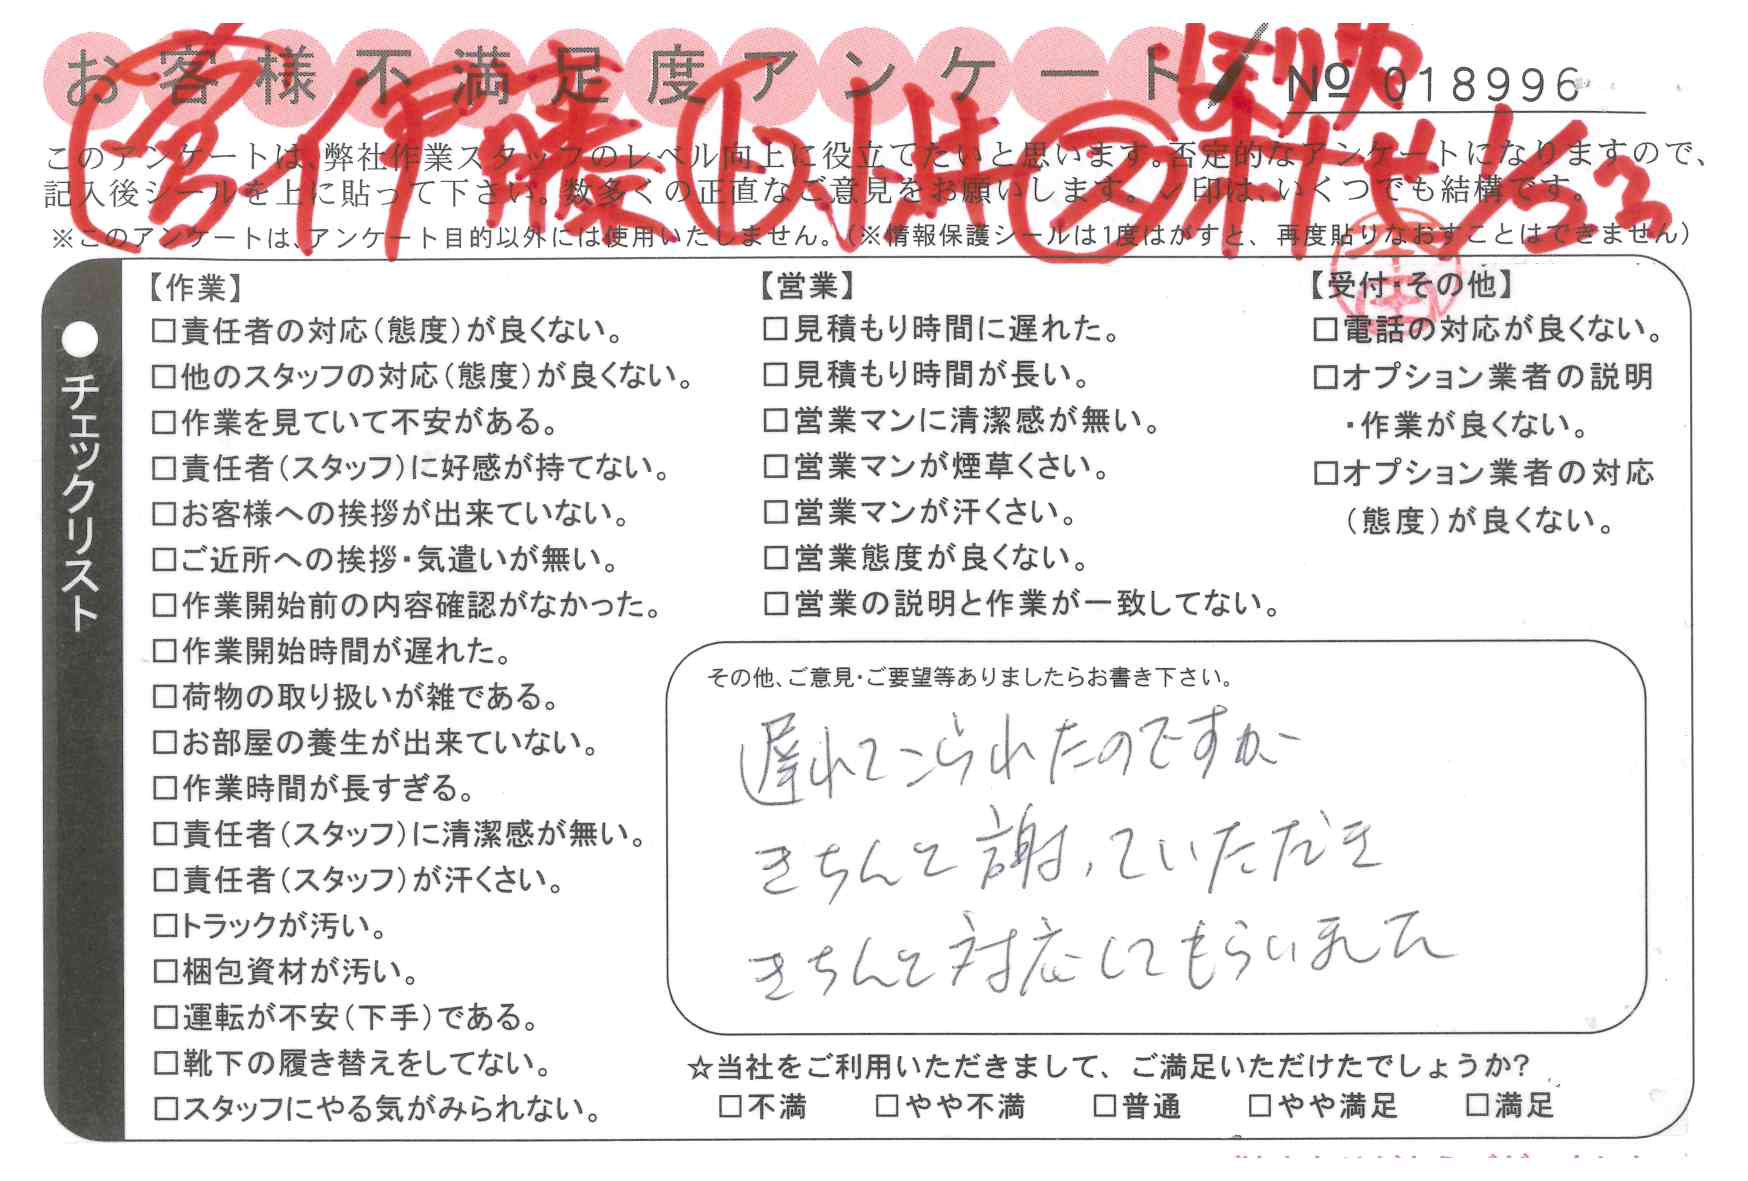 お客様不満足度アンケート
№ 018996
このアンケートは、弊社作業スタッフのレベル向上に役立てたいと思います。否定的なアンケートになりますので、
記入後シールを上に貼って下さい。数多くの正直なご意見をお願いします。✓印は、いくつでも結構です。
※このアンケートは、アンケート目的以外には使用いたしません。(※情報保護シールは1度はがすと、再度貼りなおすことはできません)
伊藤
チェックリスト
【作業】
□責任者の対応(態度)が良くない。
□他のスタッフの対応(態度)が良くない。
□作業を見ていて不安がある。
□責任者(スタッフ)に好感が持てない。
□お客様への挨拶が出来ていない。
□ご近所への挨拶・気遣いが無い。
□作業開始前の内容確認がなかった。
□作業開始時間が遅れた。
□荷物の取り扱いが雑である。
□お部屋の養生が出来ていない。
□作業時間が長すぎる。
□責任者(スタッフ)に清潔感が無い。
□責任者(スタッフ)が汗くさい。
□トラックが汚い。
□梱包資材が汚い。
□運転が不安(下手)である。
□靴下の履き替えをしてない。
□スタッフにやる気がみられない。
【営業】
□見積もり時間に遅れた。
□見積もり時間が長い。
□営業マンに清潔感が無い。
□営業マンが煙草くさい。
□営業マンが汗くさい。
□営業態度が良くない。
□営業の説明と作業が一致してない。
【受付・その他】
□電話の対応が良くない。
□オプション業者の説明
・作業が良くない。
□オプション業者の対応
(態度)が良くない。
その他、ご意見・ご要望等ありましたらお書き下さい。
遅れてこられたのですが
きちんと謝っていただき
きちんと対応してもらいました
☆当社をご利用いただきまして、ご満足いただけたでしょうか?
□不満 □やや不満 □普通 □やや満足 □満足